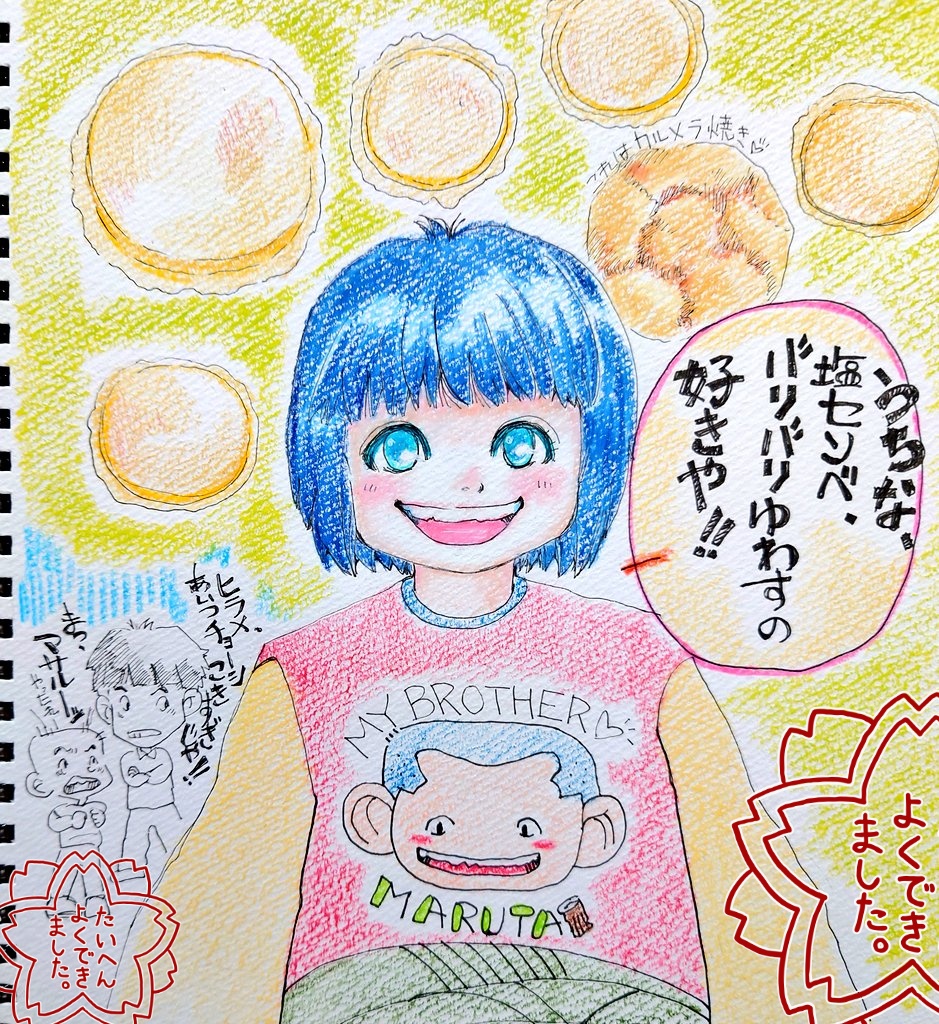 これはカルメラ焼き♡
うちな、
塩センベ、
バリバリゆわすの
好きや!!
ヒラメ、
あいつチョーシ
こきすぎ
じゃ!!
まっ、
マサルーッ
MY BROTHER♡
MARUTA
よくでき
ました。
たいへん
よくでき
ました。